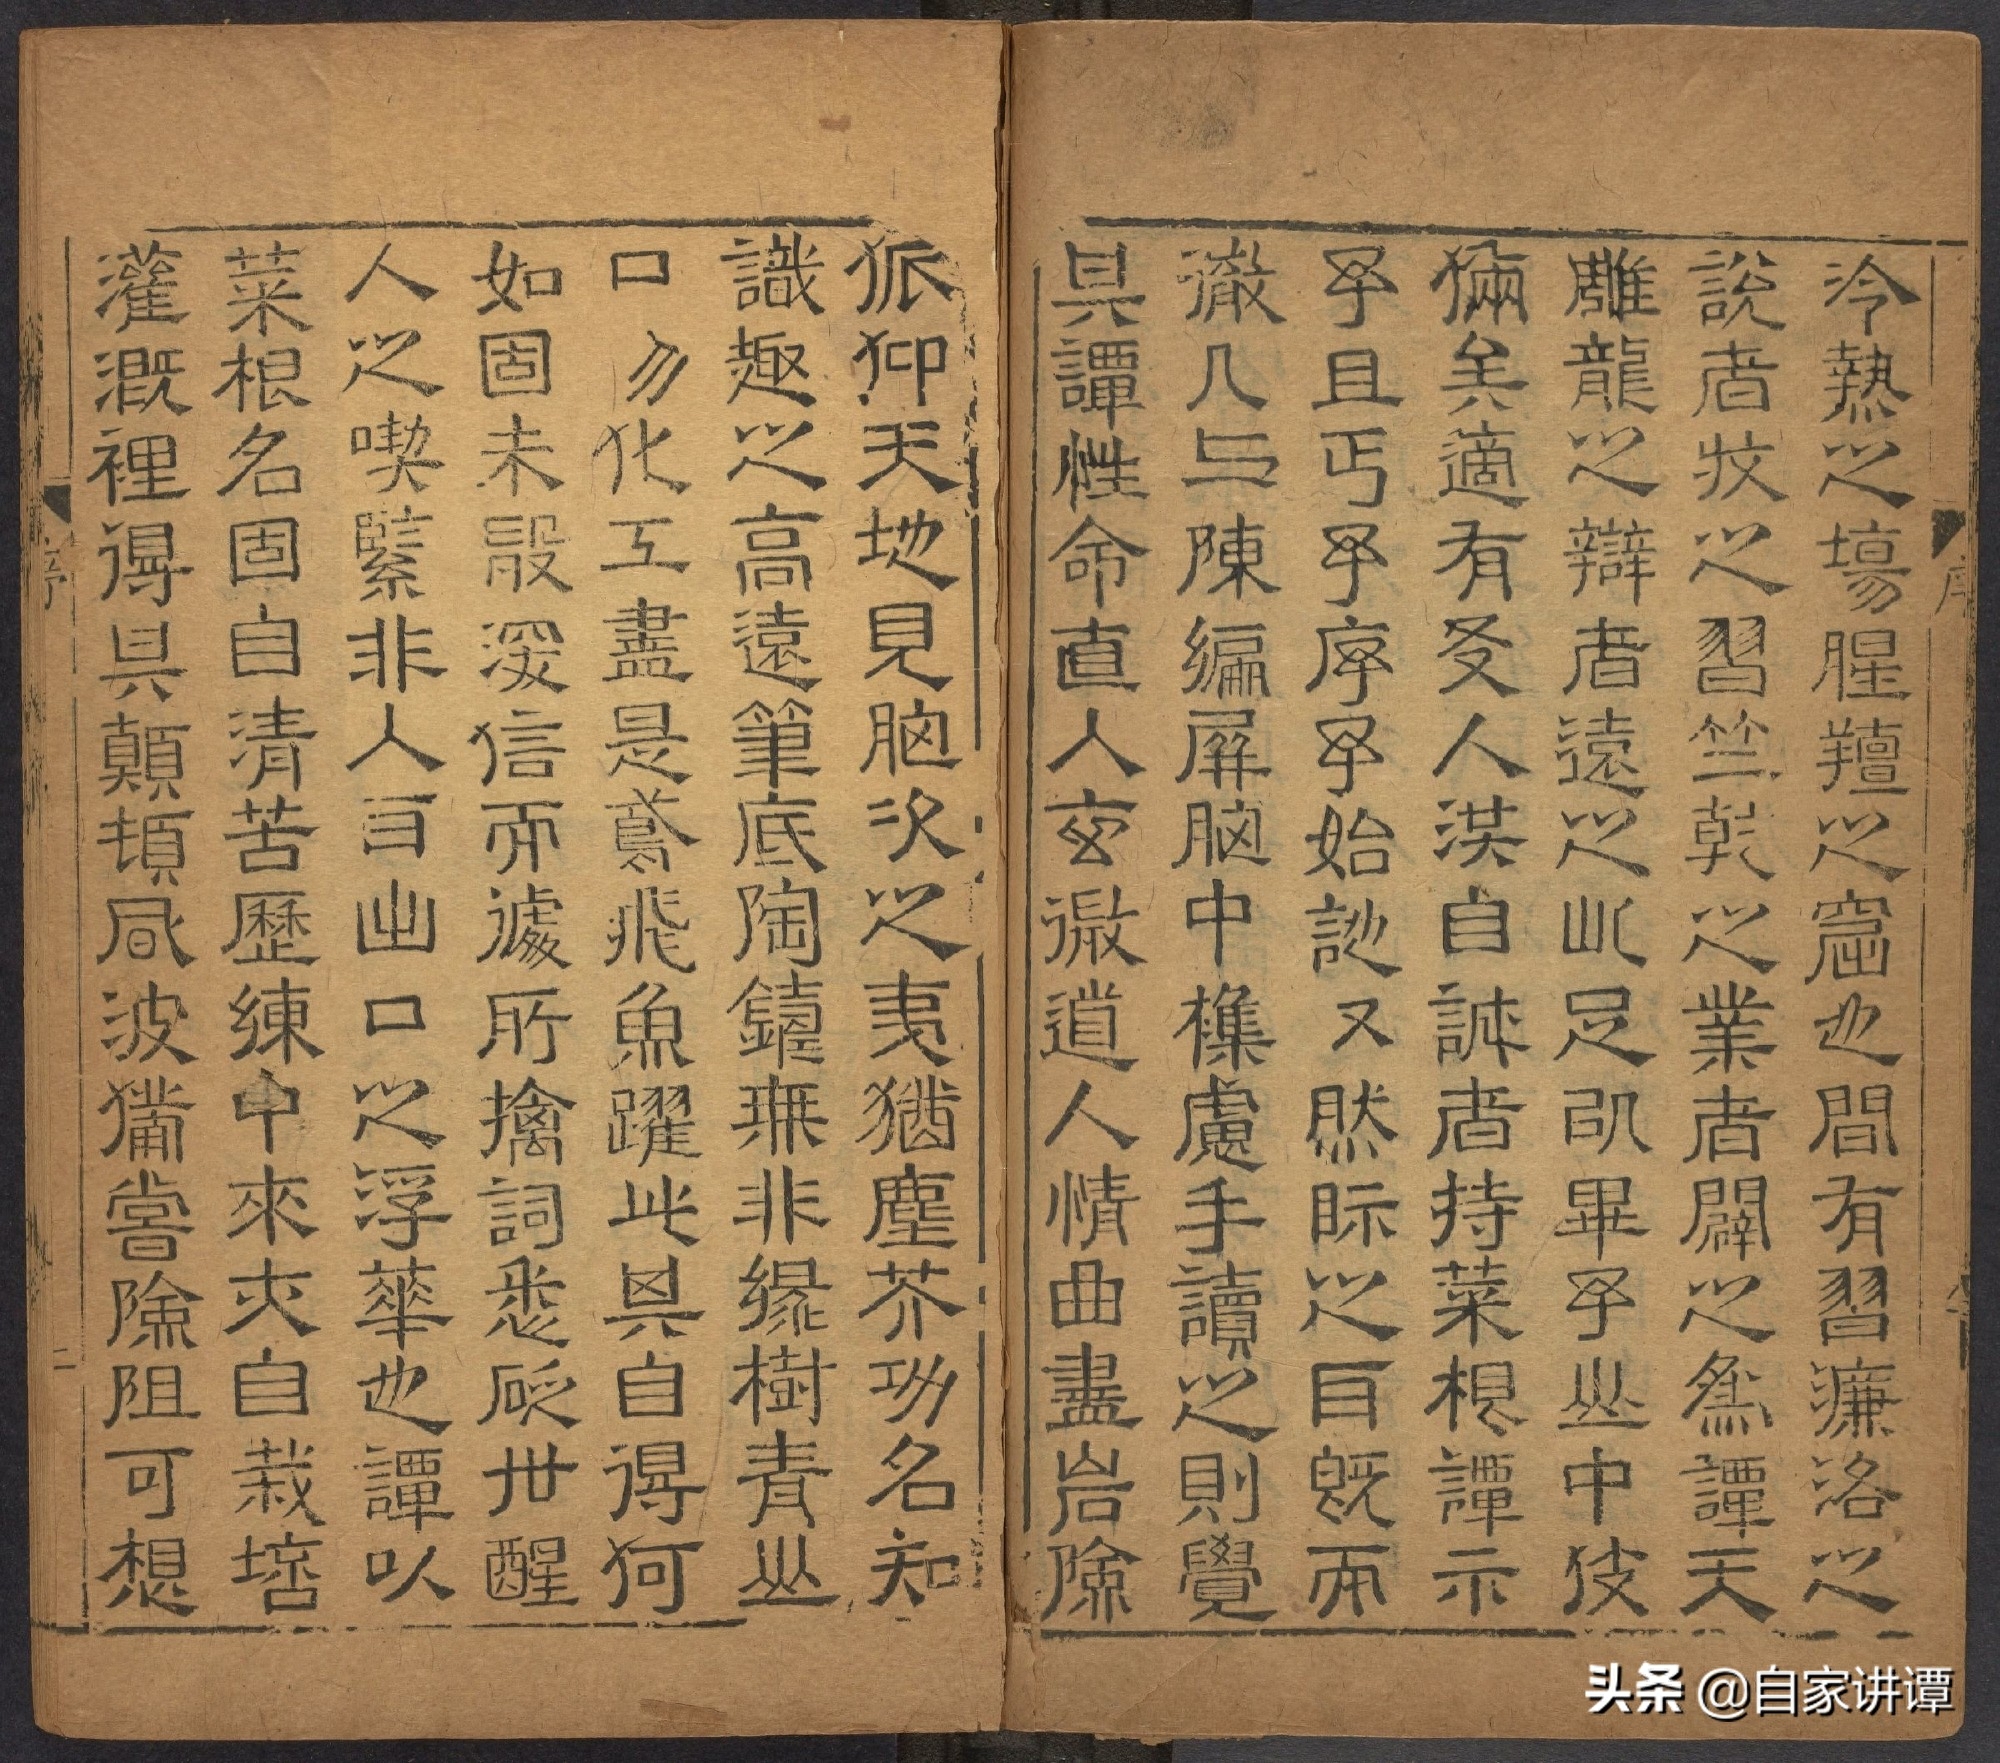 冷熱之場腥羶之窟也間有習濂洛之
說者牧之習竺乾之業者闢之為譚天
雕龍之辯者遠之此足以畢予山中伎
倆矣適有友人洪自誠者持菜根譚示
予且丐予序予始訑又然眎之耳既而
徹几上陳編屏胸中襍慮手讀之則覺
其譚性命直入玄微道人情曲盡岩險
俯仰天地見胸次之夷猶塵芥功名知
識趣之高遠筆底陶鑄無非綠樹青山
口吻化工盡是鳶飛魚躍此其自得何
如固未能深信而據所擒詞悉砭世醒
人之喫緊非入耳出口之浮華也譚以
菜根名固自清苦歷練中來亦自栽培
灌溉裡得其顛頓風波備嘗險阻可想
序
序
二
头条 @自家讲谭